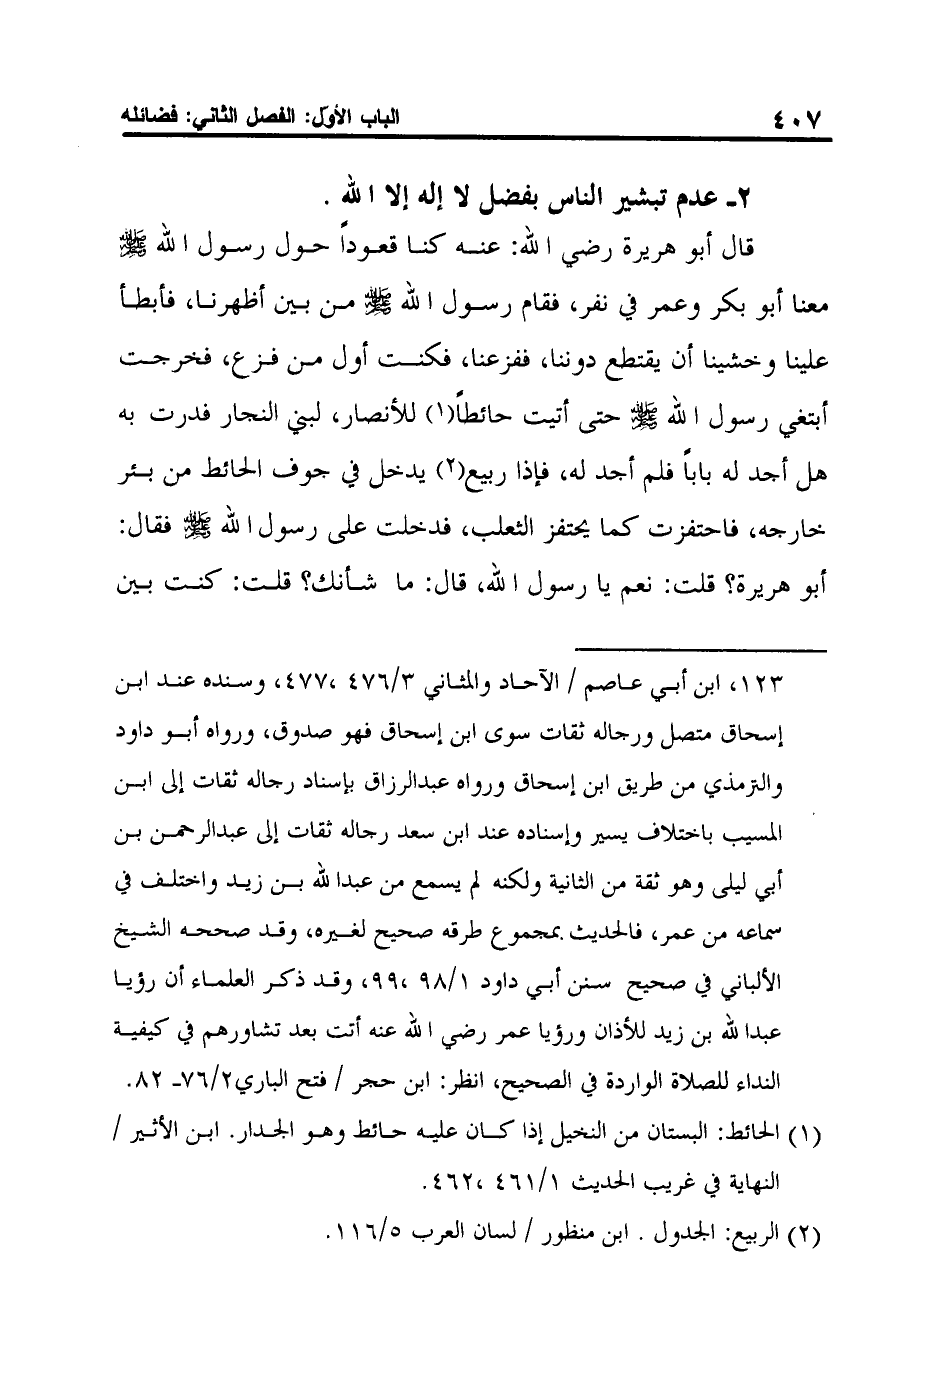 ٤٠٧ الباب الأول: الفصل الثاني: فضائله
٢ـ عدم تبشير الناس بفضل لا إله إلا الله .
قال أبو هريرة رضي الله: عنه كنا قعوداً حول رسول الله ﷺ
معنا أبو بكر وعمر في نفر، فقام رسول الله ﷺ من بين أظهرنا، فأبطأ
علينا وخشينا أن يقتطع دوننا، ففزعنا، فكنت أول من فزع، فخرجت
أبتغي رسول الله ﷺ حتى أتيت حائطاً(١) للأنصار، لبني النجار فدرت به
هل أجد له باباً فلم أجد له، فإذا ربيع(٢) يدخل في جوف الحائط من بئر
خارجه، فاحتفزت كما يحتفز الثعلب، فدخلت على رسول الله ﷺ فقال:
أبو هريرة؟ قلت: نعم يا رسول الله، قال: ما شأنك؟ قلت: كنت بين
١٢٣، ابن أبي عاصم / الآحاد والمثاني ٤٧٦/٣، ٤٧٧، وسنده عند ابن
إسحاق متصل ورجاله ثقات سوى ابن إسحاق فهو صدوق، ورواه أبو داود
والترمذي من طريق ابن إسحاق ورواه عبدالرزاق بإسناد رجاله ثقات إلى ابن
المسيب باختلاف يسير وإسناده عند ابن سعد رجاله ثقات إلى عبدالرحمن بن
أبي ليلى وهو ثقة من الثانية ولكنه لم يسمع من عبدالله بن زيد واختلف في
سماعه من عمر، فالحديث بمجموع طرقه صحيح لغيره، وقد صححه الشيخ
الألباني في صحيح سنن أبي داود ٩٨/١، ٩٩، وقد ذكر العلماء أن رؤيا
عبدالله بن زيد للأذان ورؤيا عمر رضي الله عنه أتت بعد تشاورهم في كيفية
النداء للصلاة الواردة في الصحيح، انظر: ابن حجر / فتح الباري٧٦/٢ـ ٨٢.
(١) الحائط: البستان من النخيل إذا كان عليه حائط وهو الجدار. ابن الأثير /
النهاية في غريب الحديث ٤٦١/١، ٤٦٢.
(٢) الربيع: الجدول . ابن منظور / لسان العرب ١١٦/٥.